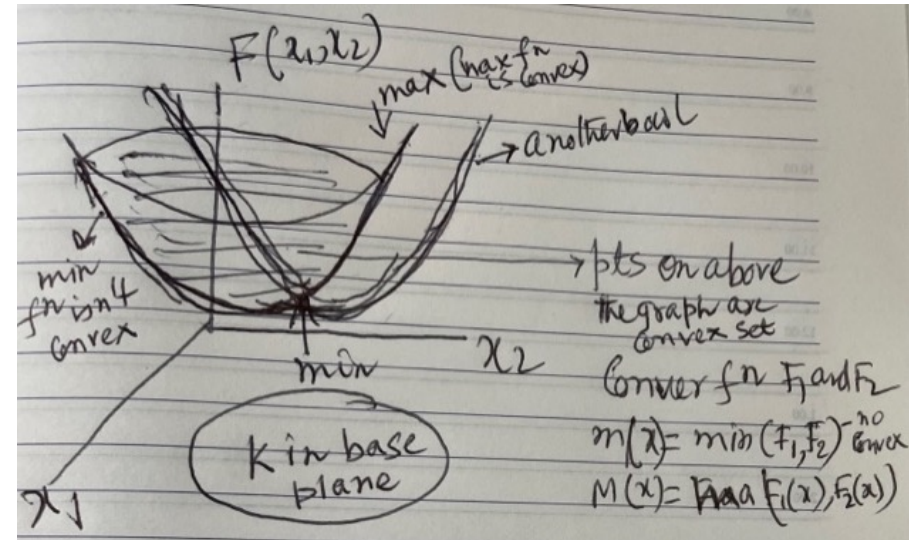 F(x1,x2)
max (max fn
is convex)
another bowl
min
fn isn't
convex
pts on above
the graph are
convex set
x2
min
Convex fn F1 and F2
m(x) = min (F1,F2) - no
convex
K in base
plane
M(x) = (F1(x), F2(x))
x1